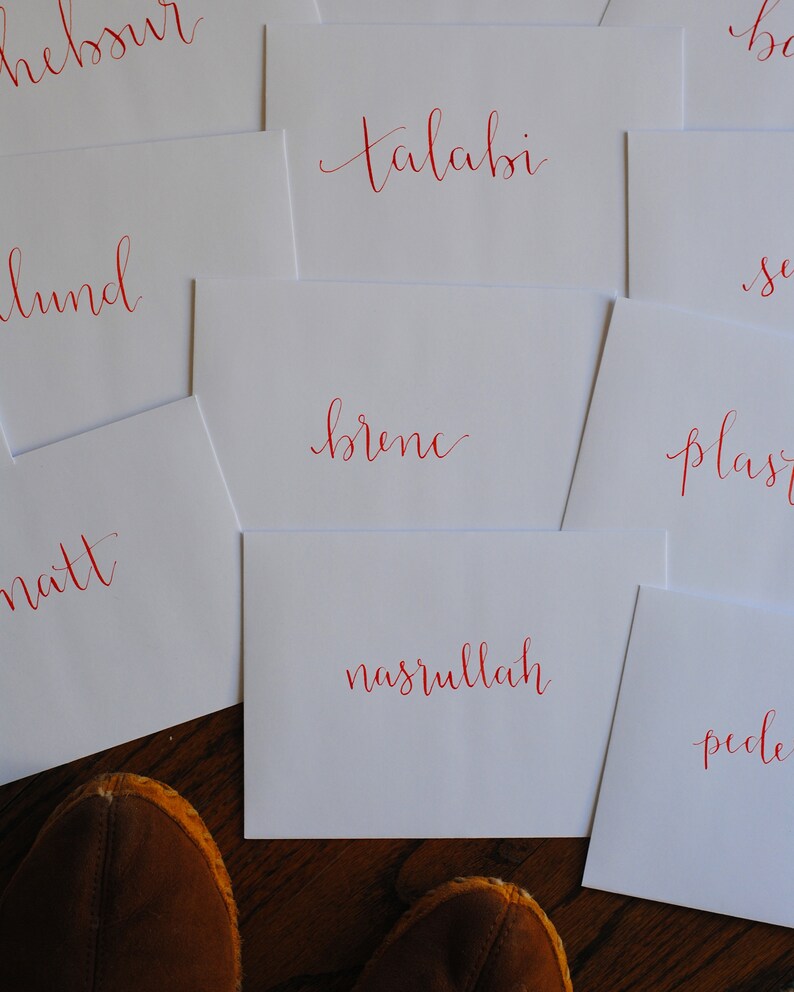 hebsur
talabi
ba
lund
se
brenc
plas
natt
nasrullah
pede